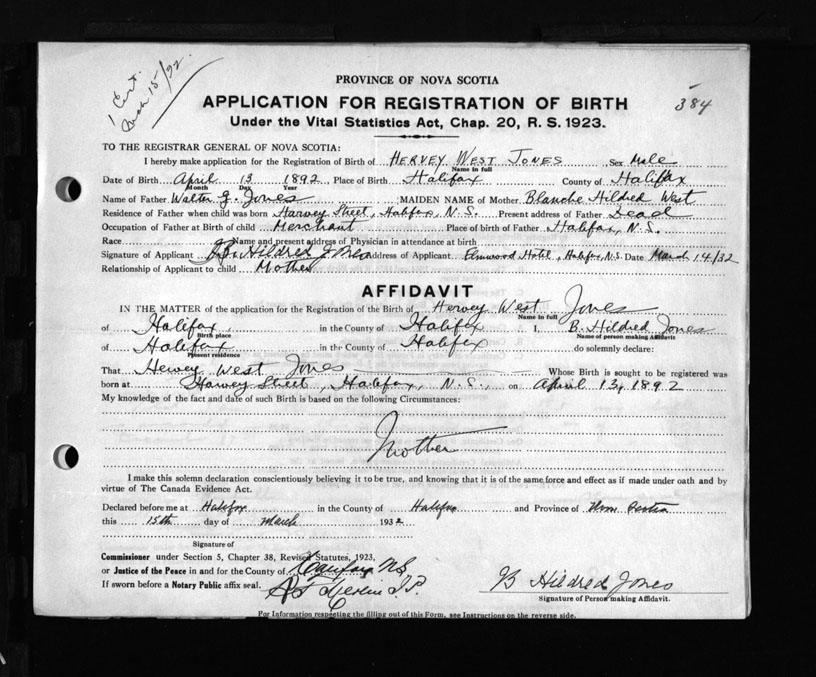 1 Cert.
March 15/32.
384
PROVINCE OF NOVA SCOTIA
APPLICATION FOR REGISTRATION OF BIRTH
Under the Vital Statistics Act, Chap. 20, R. S. 1923.
TO THE REGISTRAR GENERAL OF NOVA SCOTIA:
I hereby make application for the Registration of Birth of HERVEY WEST JONES Sex Male
Name in full
Date of Birth April 13 1892, Place of Birth Halifax County of Halifax
Month Day Year
Name of Father Walter G. Jones MAIDEN NAME of Mother Blanche Hildred West
Residence of Father when child was born Harvey Street, Halifax, N.S. Present address of Father Dead
Occupation of Father at Birth of child Merchant Place of birth of Father Halifax, N.S.
Race Name and present address of Physician in attendance at birth
Signature of Applicant B. Hildred Jones Address of Applicant Elmwood Hotel, Halifax, N.S. Date March 14/32
Relationship of Applicant to child Mother
AFFIDAVIT
IN THE MATTER of the application for the Registration of the Birth of Hervey West Jones
Name in full
of Halifax, in the County of Halifax I, B. Hildred Jones
Birth place Name of person making Affidavit
of Halifax in the County of Halifax do solemnly declare:
Present residence
That Hervey West Jones Whose Birth is sought to be registered was
born at Harvey Street, Halifax, N.S., on April 13, 1892
My knowledge of the fact and date of such Birth is based on the following Circumstances:
Mother
I make this solemn declaration conscientiously believing it to be true, and knowing that it is of the same force and effect as if made under oath and by
virtue of The Canada Evidence Act.
Declared before me at Halifax in the County of Halifax and Province of Nova Scotia
this 15th day of March 1932
Signature of
Commissioner under Section 5, Chapter 38, Revised Statutes, 1923,
or Justice of the Peace in and for the County of Halifax NS
If sworn before a Notary Public affix seal. J.P.
B Hildred Jones
Signature of Person making Affidavit.
For Information respecting the filling out of this Form, see Instructions on the reverse side.